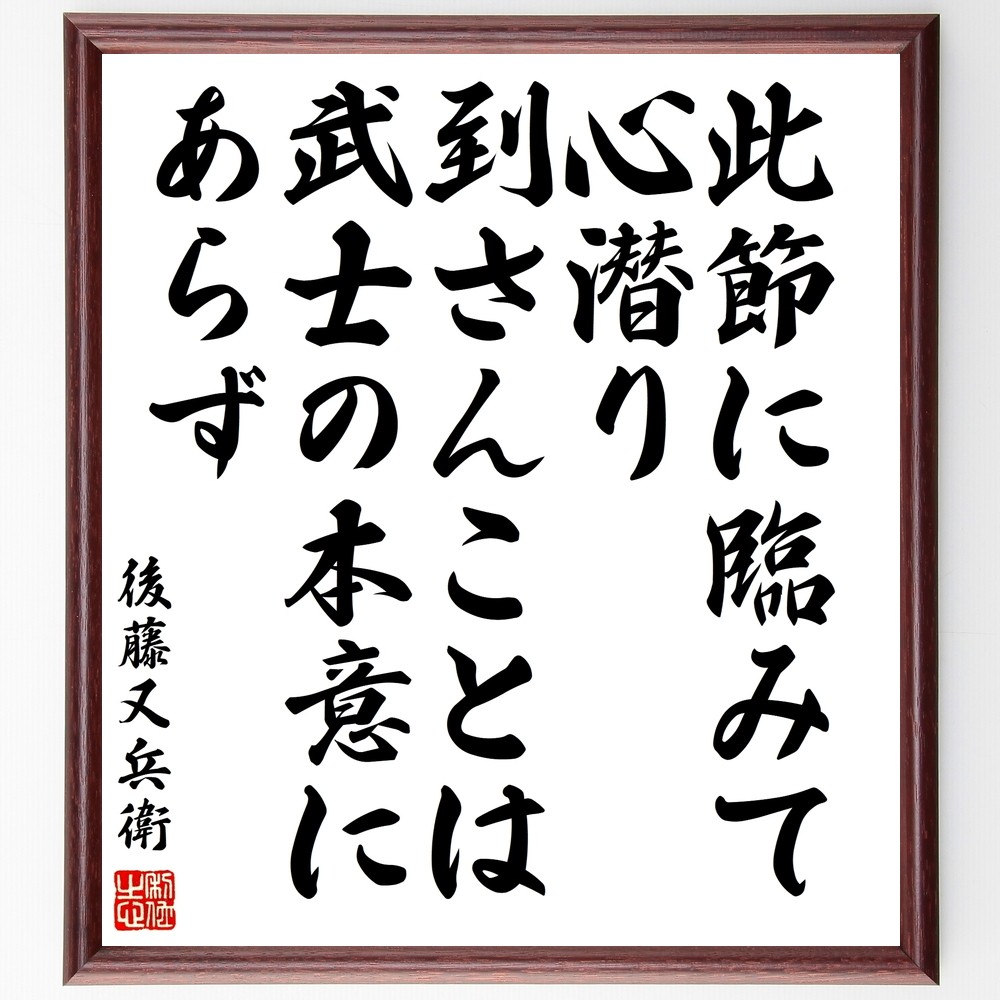 此節に臨みて
心潜り
到さんことは
武士の本意に
あらず
後藤又兵衛